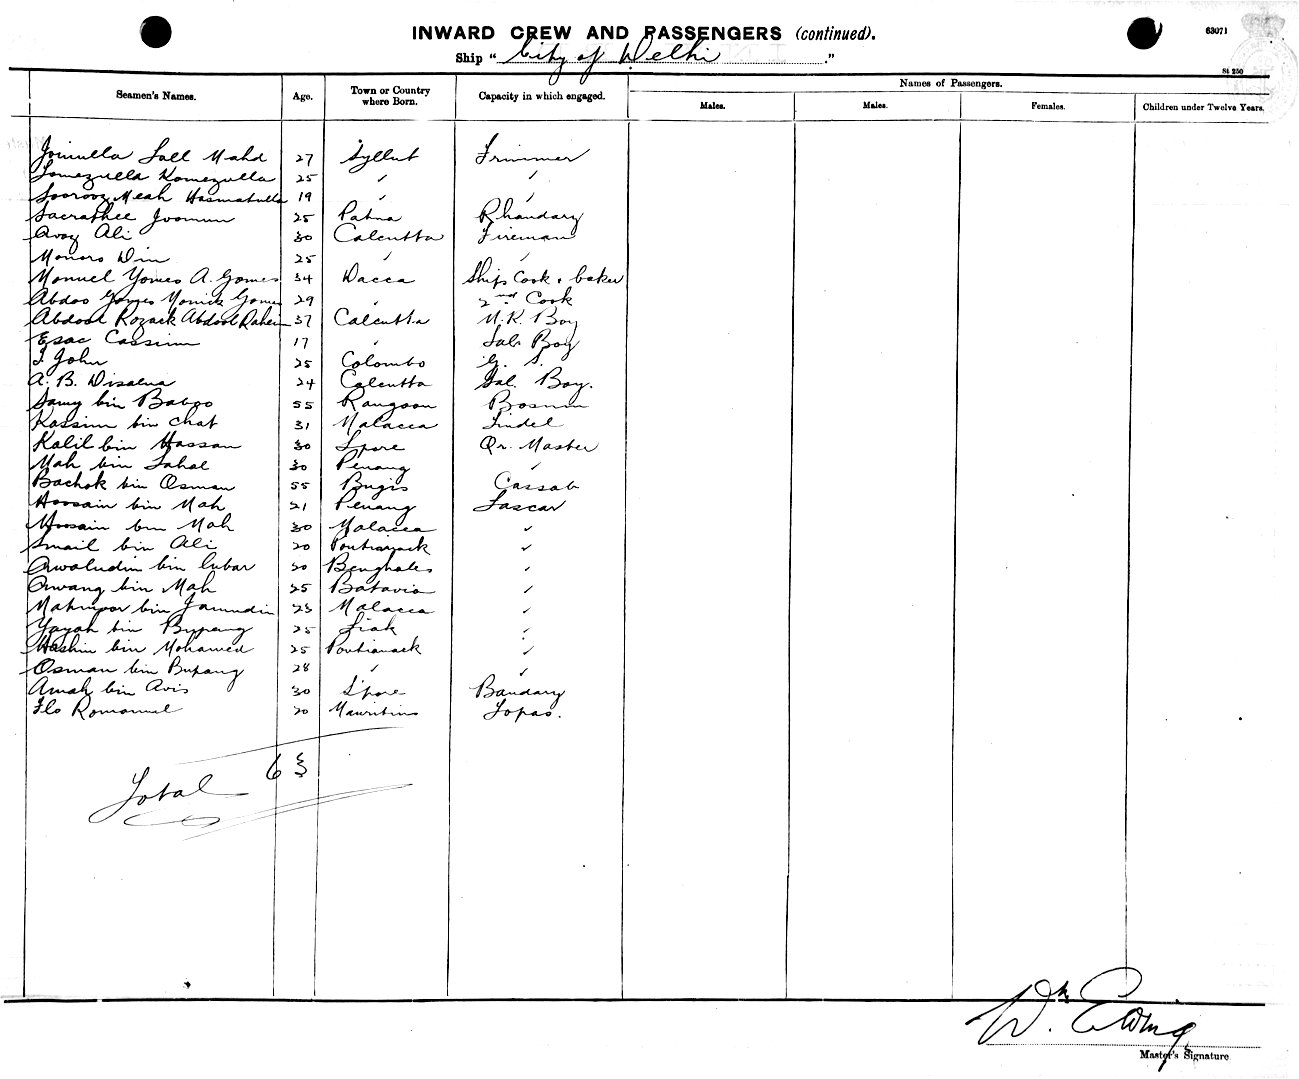 INWARD CREW AND PASSENGERS (continued).
63071
Ship "City of Delhi."
St 250
Seamen's Names. Age. Town or Country where Born. Capacity in which engaged. Names of Passengers.
Males. Males. Females. Children under Twelve Years.
Joinulla Lall Mahd 27 Syllut Trimmer
Tomezulla Komezulla 25 " "
Soorooz Meah Hasmatulla 19 " "
Sacrathee Jooman 25 Patna Bhandary
Avoy Ali 30 Calcutta Fireman
Monoro Din 25 " "
Monuel Gomes A. Gomes 34 Dacca Ships Cook & baker
Abdoo Gomes Monick Gomes 29 " 2nd Cook
Abdool Rozack Abdool Rahem 37 Calcutta M.R. Boy
Esac Cassim 17 " Sal. Boy
I. John 25 Colombo G. S.
A. B. Disalva 24 Calcutta Sal. Boy.
Samy bin Baboo 55 Rangoon Bosmun
Kassim bin Chat 31 Malacca Tindel
Kalil bin Hassan 30 Spore Qr. Master
Mah bin Sahal 30 Penang "
Bachok bin Osman 55 Bugis Cassab
Hoosain bin Mah 21 Penang Lascar
Hoosain bin Mah 30 Malacca "
Smail bin Ali 20 Pontianack "
Awaludin bin Cubar 20 Benghales "
Awang bin Mah 25 Batavia "
Mahmoor bin Jamudin 23 Malacca "
Yayah bin Bupang 25 Siak "
Hashim bin Mohamed 25 Pontianack "
Osman bin Bupang 28 " "
Amah bin Avis 30 S'pore Bandary
Flo Romanuel 20 Mauritius Topas.
Total 63
Wm. Ewing
Master's Signature